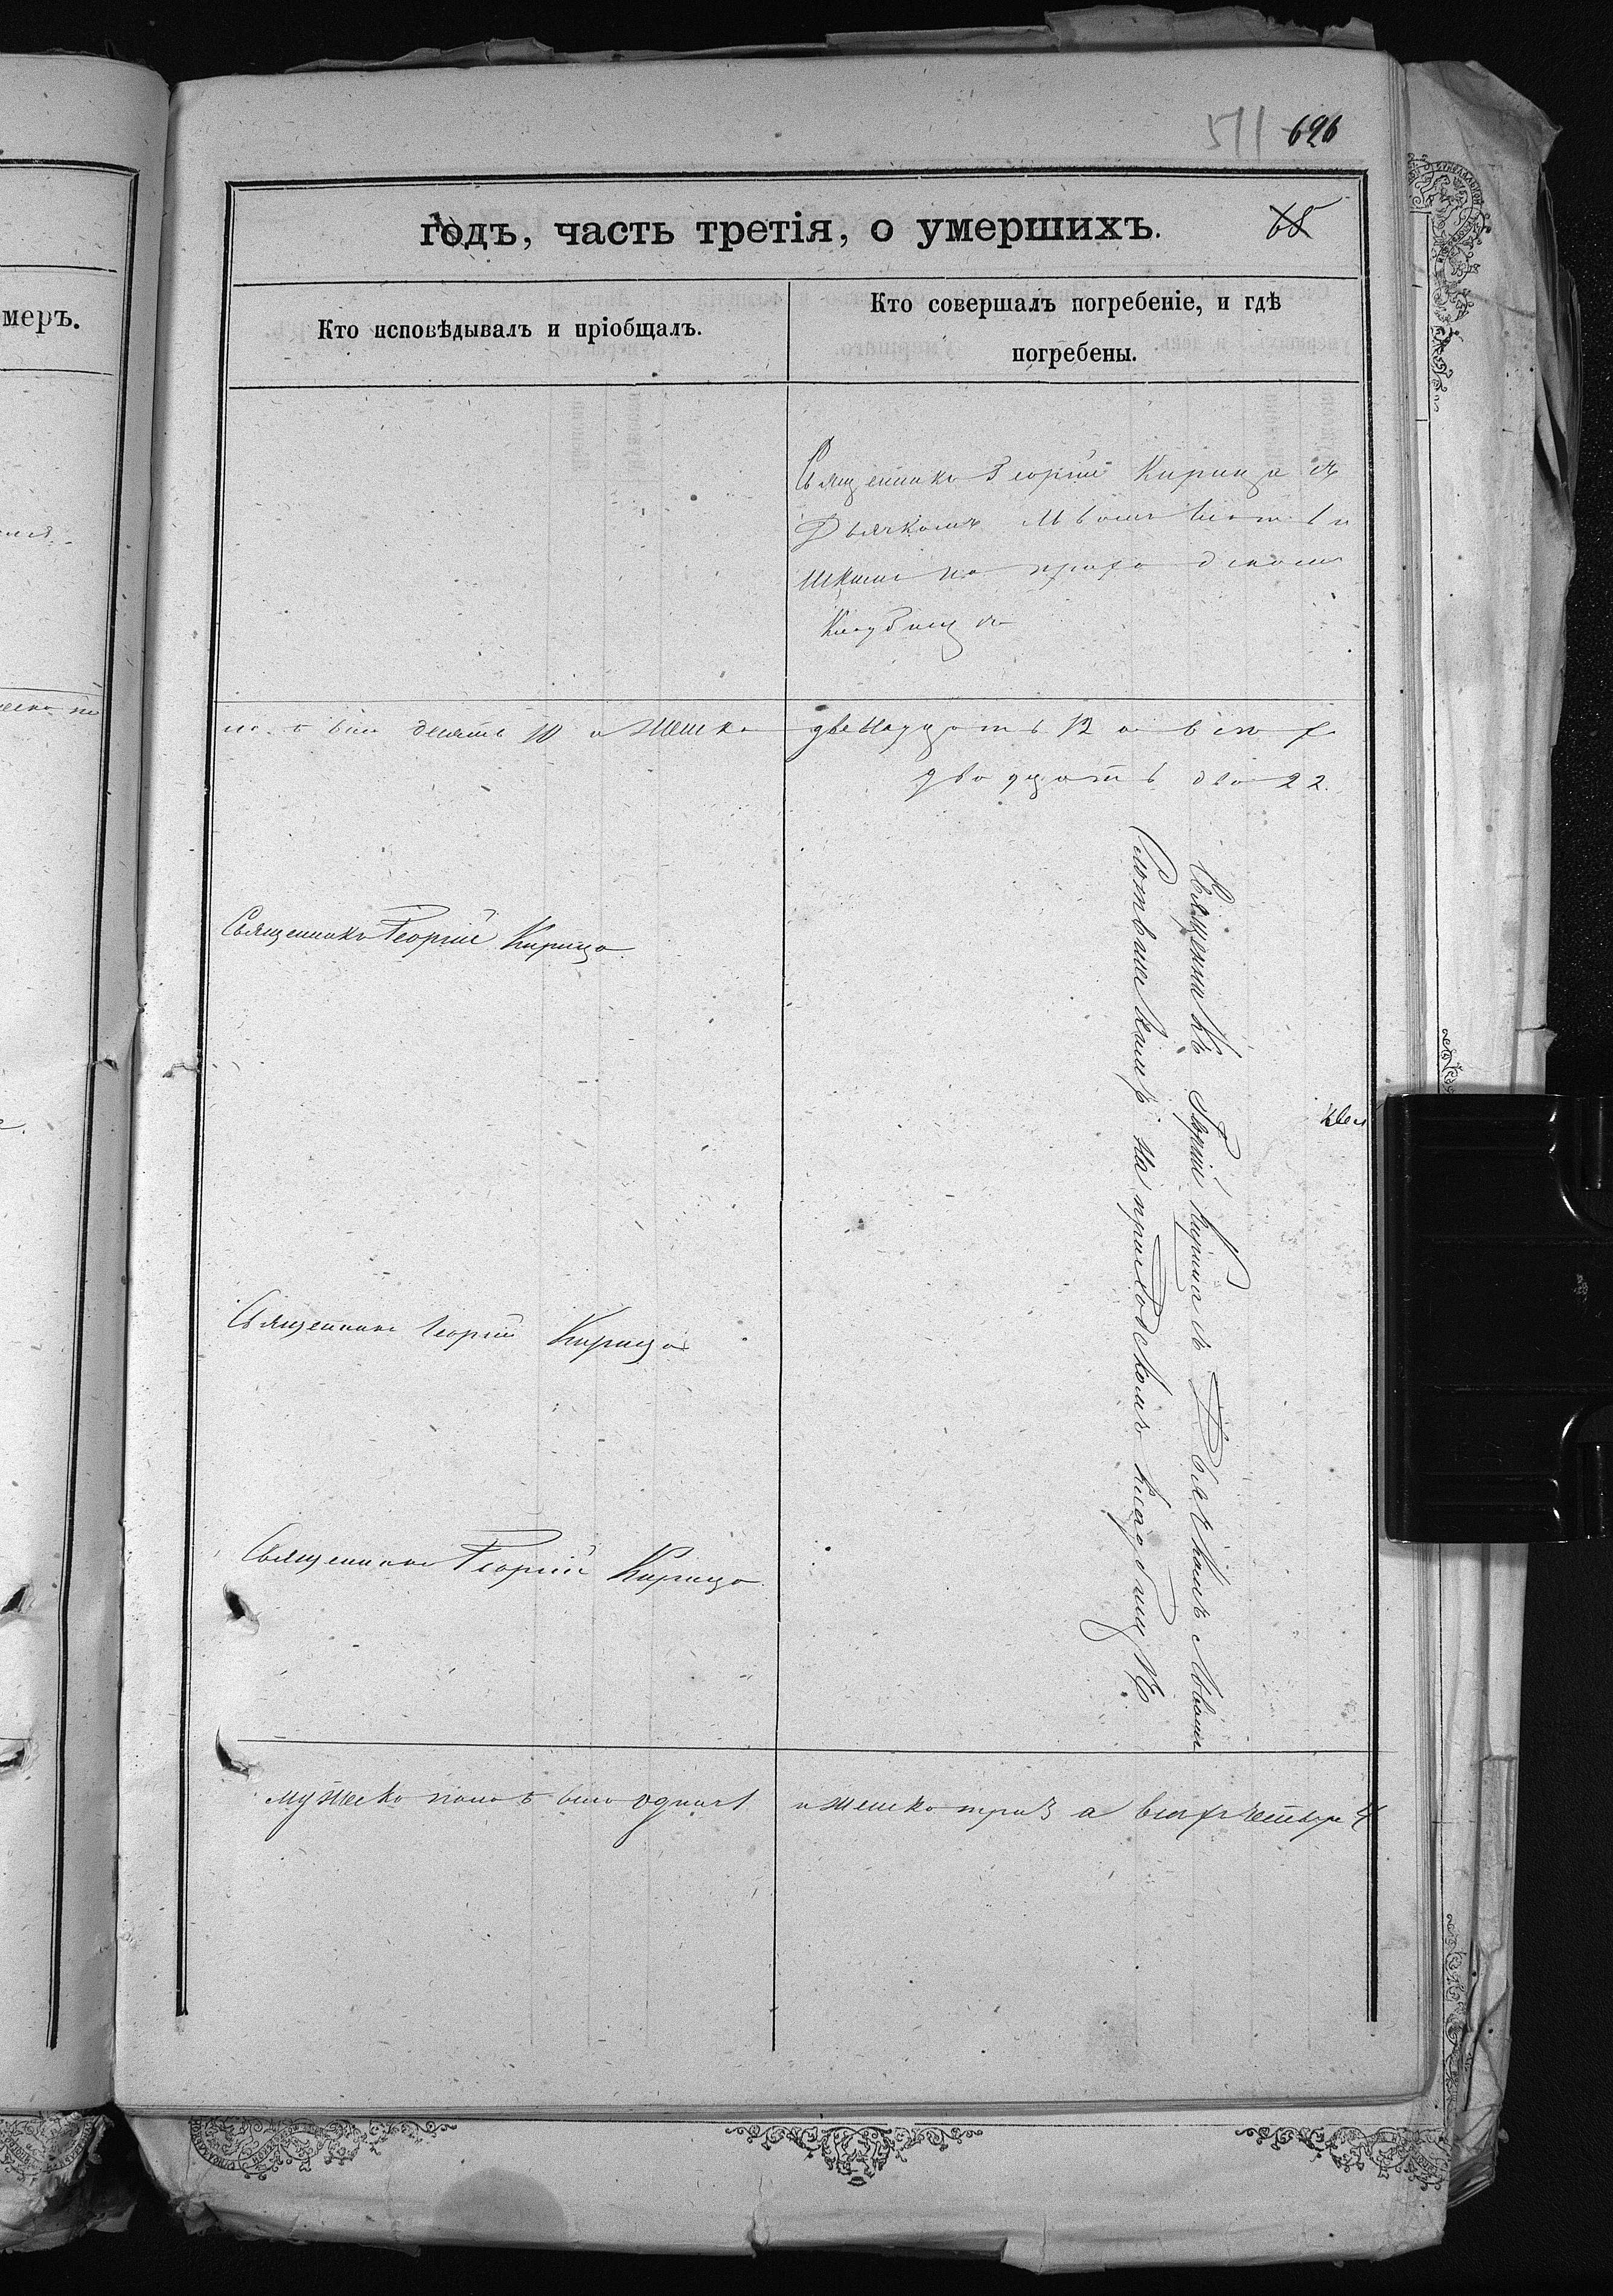 511 626
годъ, часть третія, о умершихъ. 68
меръ.
Кто исповѣдывалъ и пріобщалъ.
Кто совершалъ погребеніе, и гдѣ
погребены.
Священикъ Георгій Кирица съ
Дьячкомъ Львомъ
на приходскомъ
Кладбищѣ
десять 10 и женско двенадцать 12 а всѣхъ
двадцать два 22.
Священникъ Георгій Кирица
Священникъ Георгій Кирица съ Дьячкомъ Львомъ
на приходскомъ кладбищѣ
Священникъ Георгій Кирица
Священникъ Георгій Кирица
мужеско пола одинъ 1 и женско три 3 а всѣхъ четыре 4